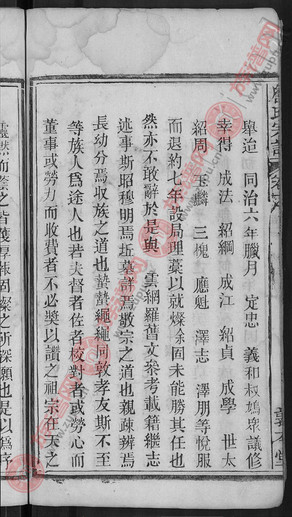 舉迨　同治六年臘月　定忠　義和叔鳩眾議修
幸得　成法　紹綱　成江　紹貞　成學　世太
紹周　玉麟　三槐　應魁　澤志　澤朋等悅服
而退約七年設局理藁以就燦徐固未能勝其任也
然亦不敢辭於是與　雲綱羅舊文叅考載籍繼志
述事斯昭穆明焉坵墓詳焉敬宗之道也親疎辨焉
長幼分焉収族之道也蟄蟄繩繩同敦孝友斯不至
等族人爲途人也若夫督者佐者校對者或勞心而
董事或勞力而收費者不必奬以讚之祖宗在天之
靈然而鑒之皆後厚報固燦之所深願也是以爲序